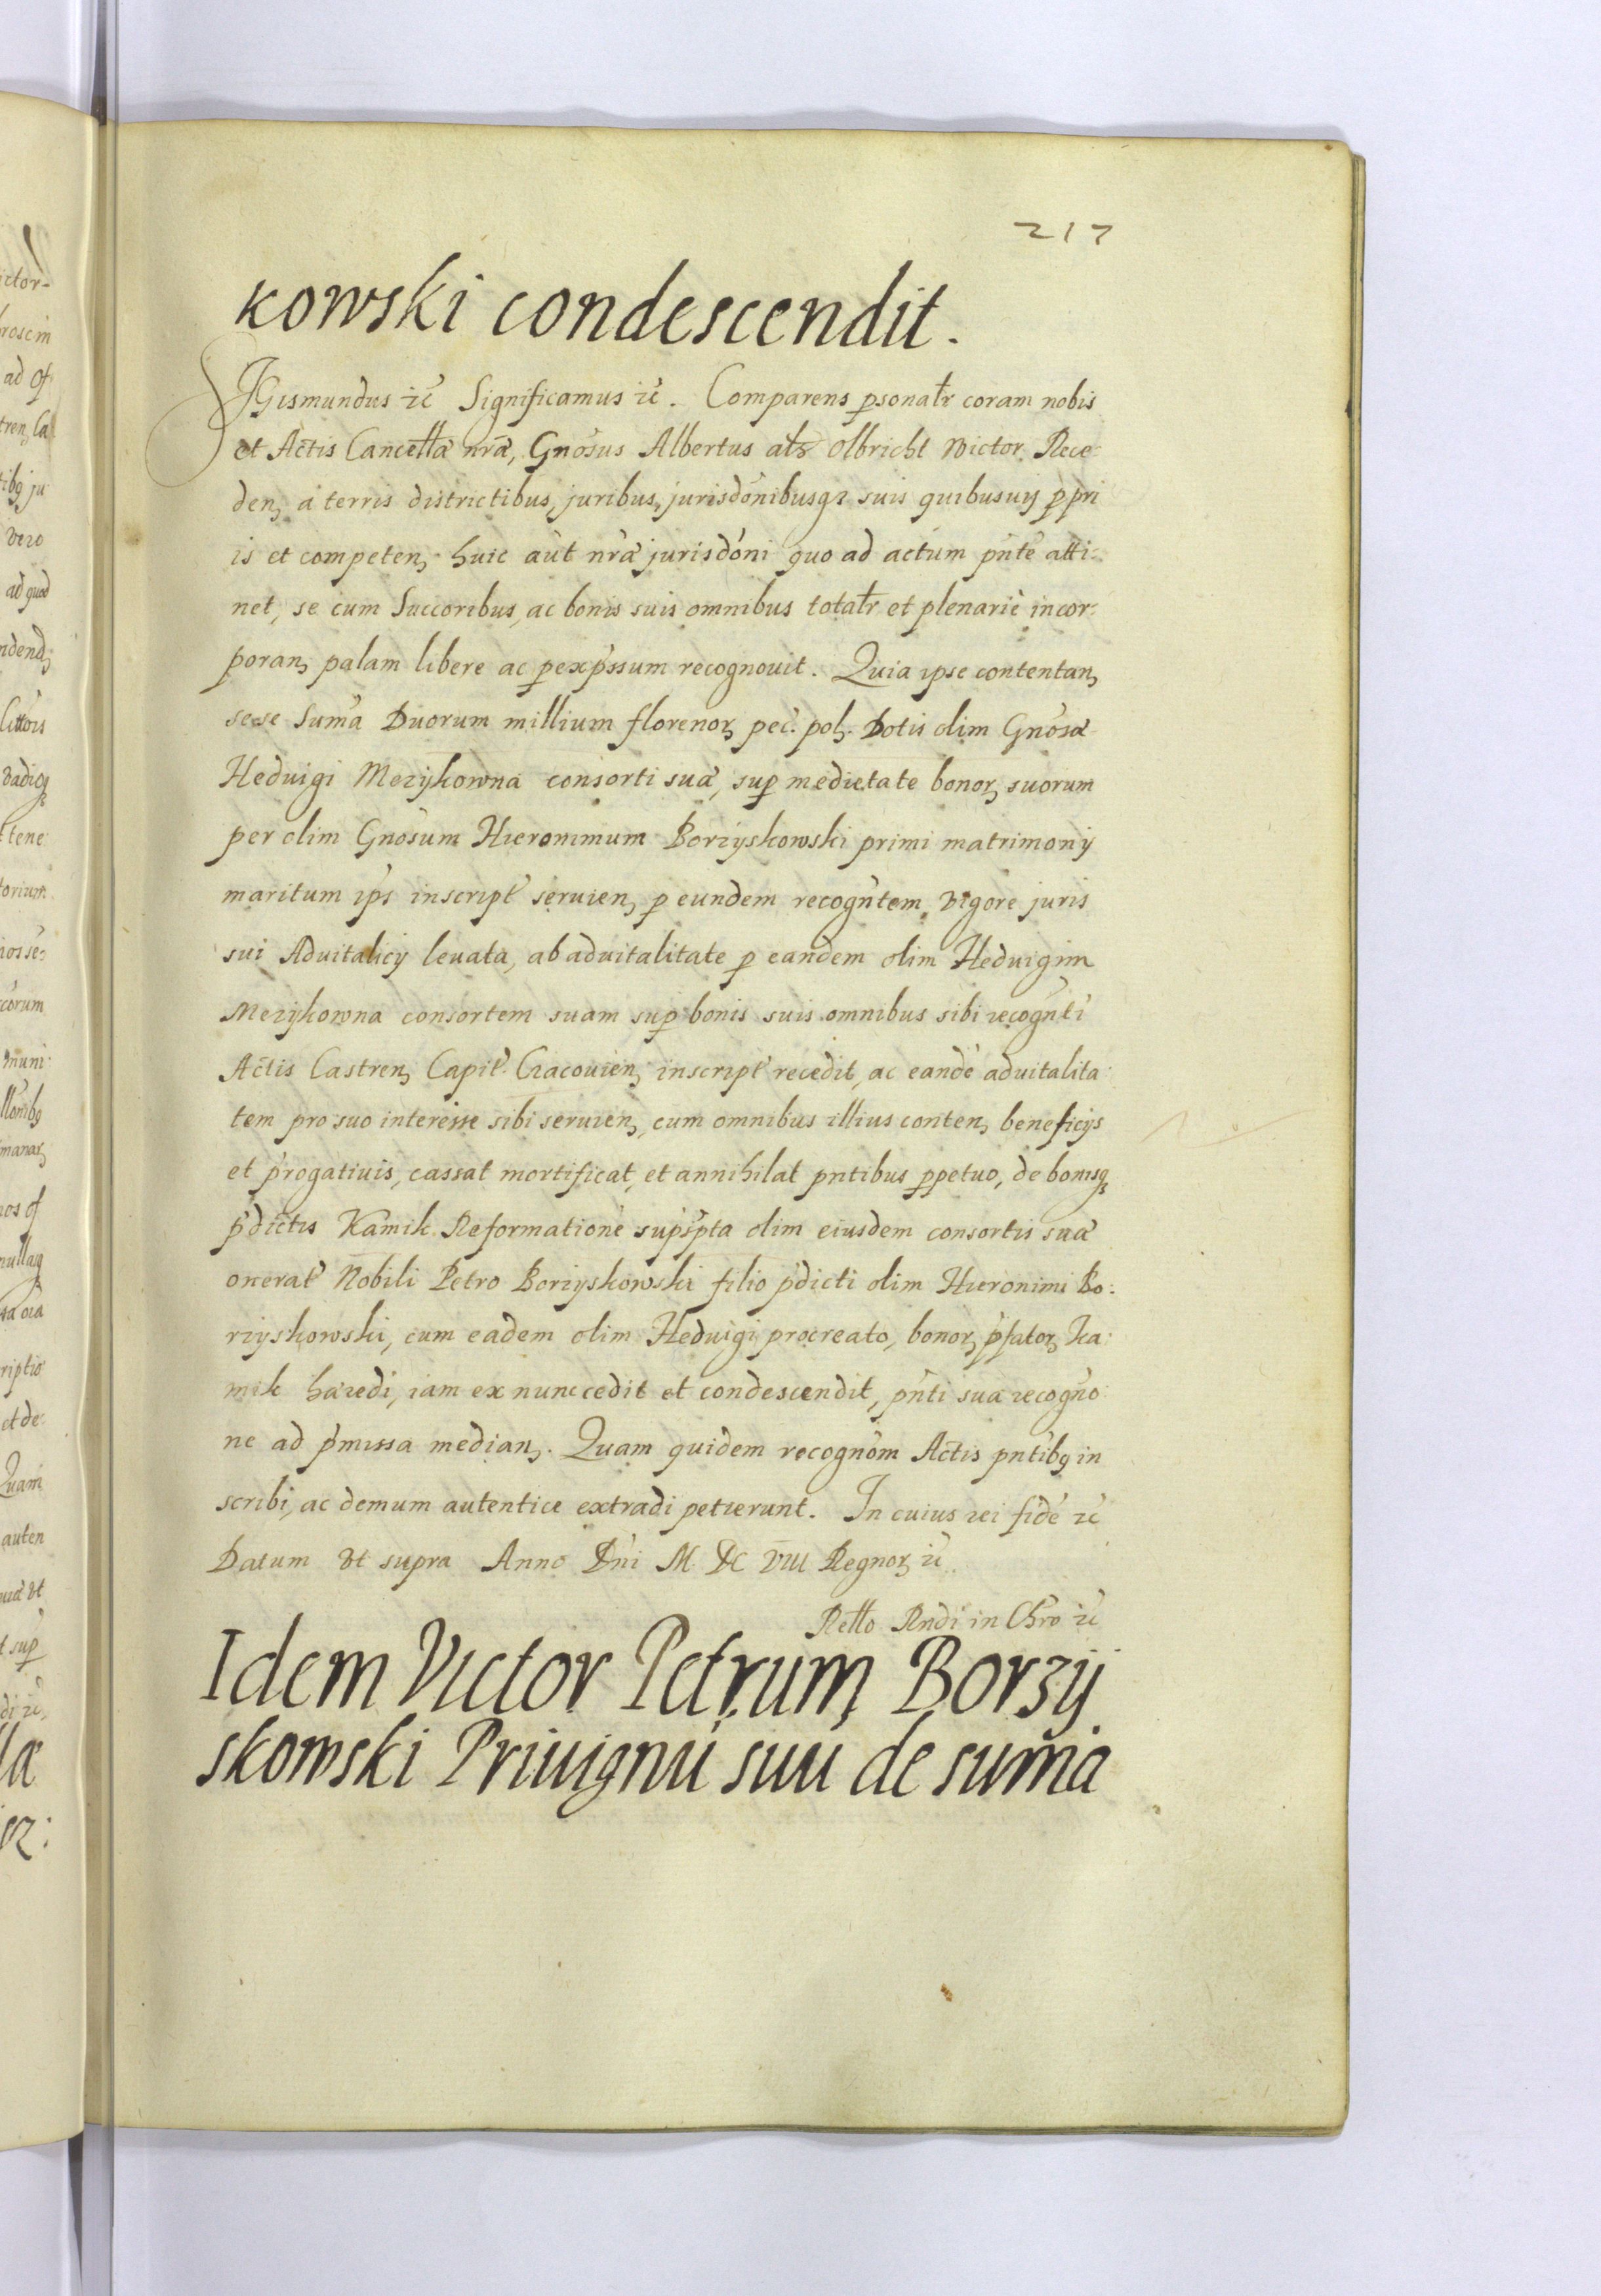 217
kowski condescendit.
SIGismundus ꝛc̃ Significamus ꝛc̃. Comparens ꝑsonalr̃ coram nobis
et Actis Cancellæ nr̃æ, Gnõsus Albertus als Olbricht Wictor Rece:
den, á terris districtibus, juribus, jurisdõnibusqꝫ suis quibusuis ꝑpri
is et competen, huic aũt nr̃æ jurisdõni quo ad actum pñte atti:
net, se cum Succoribus, ac bonis suis omnibus totalr̃ et plenariè incor:
poran, palam libere ac ꝑexp̃ssum recognouit. Quia ipse contentan,
sese Sum̃a Duorum millium florenoꝝ pec̃. pol. Dotis olim Gnõsæ
Heduigi Mezykowna consorti suæ, suꝑ medietate bonoꝝ suorum
per olim Gnõsum Hieronimum Borzyskowski primi matrimonij
maritum ip̃i inscript̃ seruien, ꝑ eundem recogñtem, vigore juris
sui Aduitalicij leuata, ab aduitalitate ꝑ eandem olim Heduigim
Mezykowna consortem suam suꝑ bonis suis omnibus sibi recogñti
Actis Castren, Capit̃. Cracouien, inscript̃ recedit, ac eandẽ aduitalita:
tem pro suo interesse sibi seruien, cum omnibus illius conten, beneficijs
et p̃rogatiuis, cassat mortificat, et annihilat pñtibus ꝑpetuo, de bonisqꝫ
p̃dictis Kamik. Reformationẽ sup̃sp̃ta olim eiusdem consortis suæ
onerat̃ Nobili Petro Borzyskowski filio p̃dicti olim Hieronimi Bo:
rzyskowski, cum eadem olim Heduigi procreato, bonoꝝ p̃fatoꝝ Ka:
mik hæredi, iam ex nunc cedit et condescendit, pñti sua recogño:
ne ad p̃missa median,. Quam quidem recognõm Actis pñtibꝫ in
scribi, ac demum autentice extradi petierunt. In cuius rei fidẽ ꝛc̃
Datum vt supra Anno Dñi M DC VIII Regnoꝝ ꝛc̃
Rel̃lo Rndi in Chr̃o ꝛc̃
Idem Victor Petrum Borzy
skowski Priuignũ suũ de sum̃a